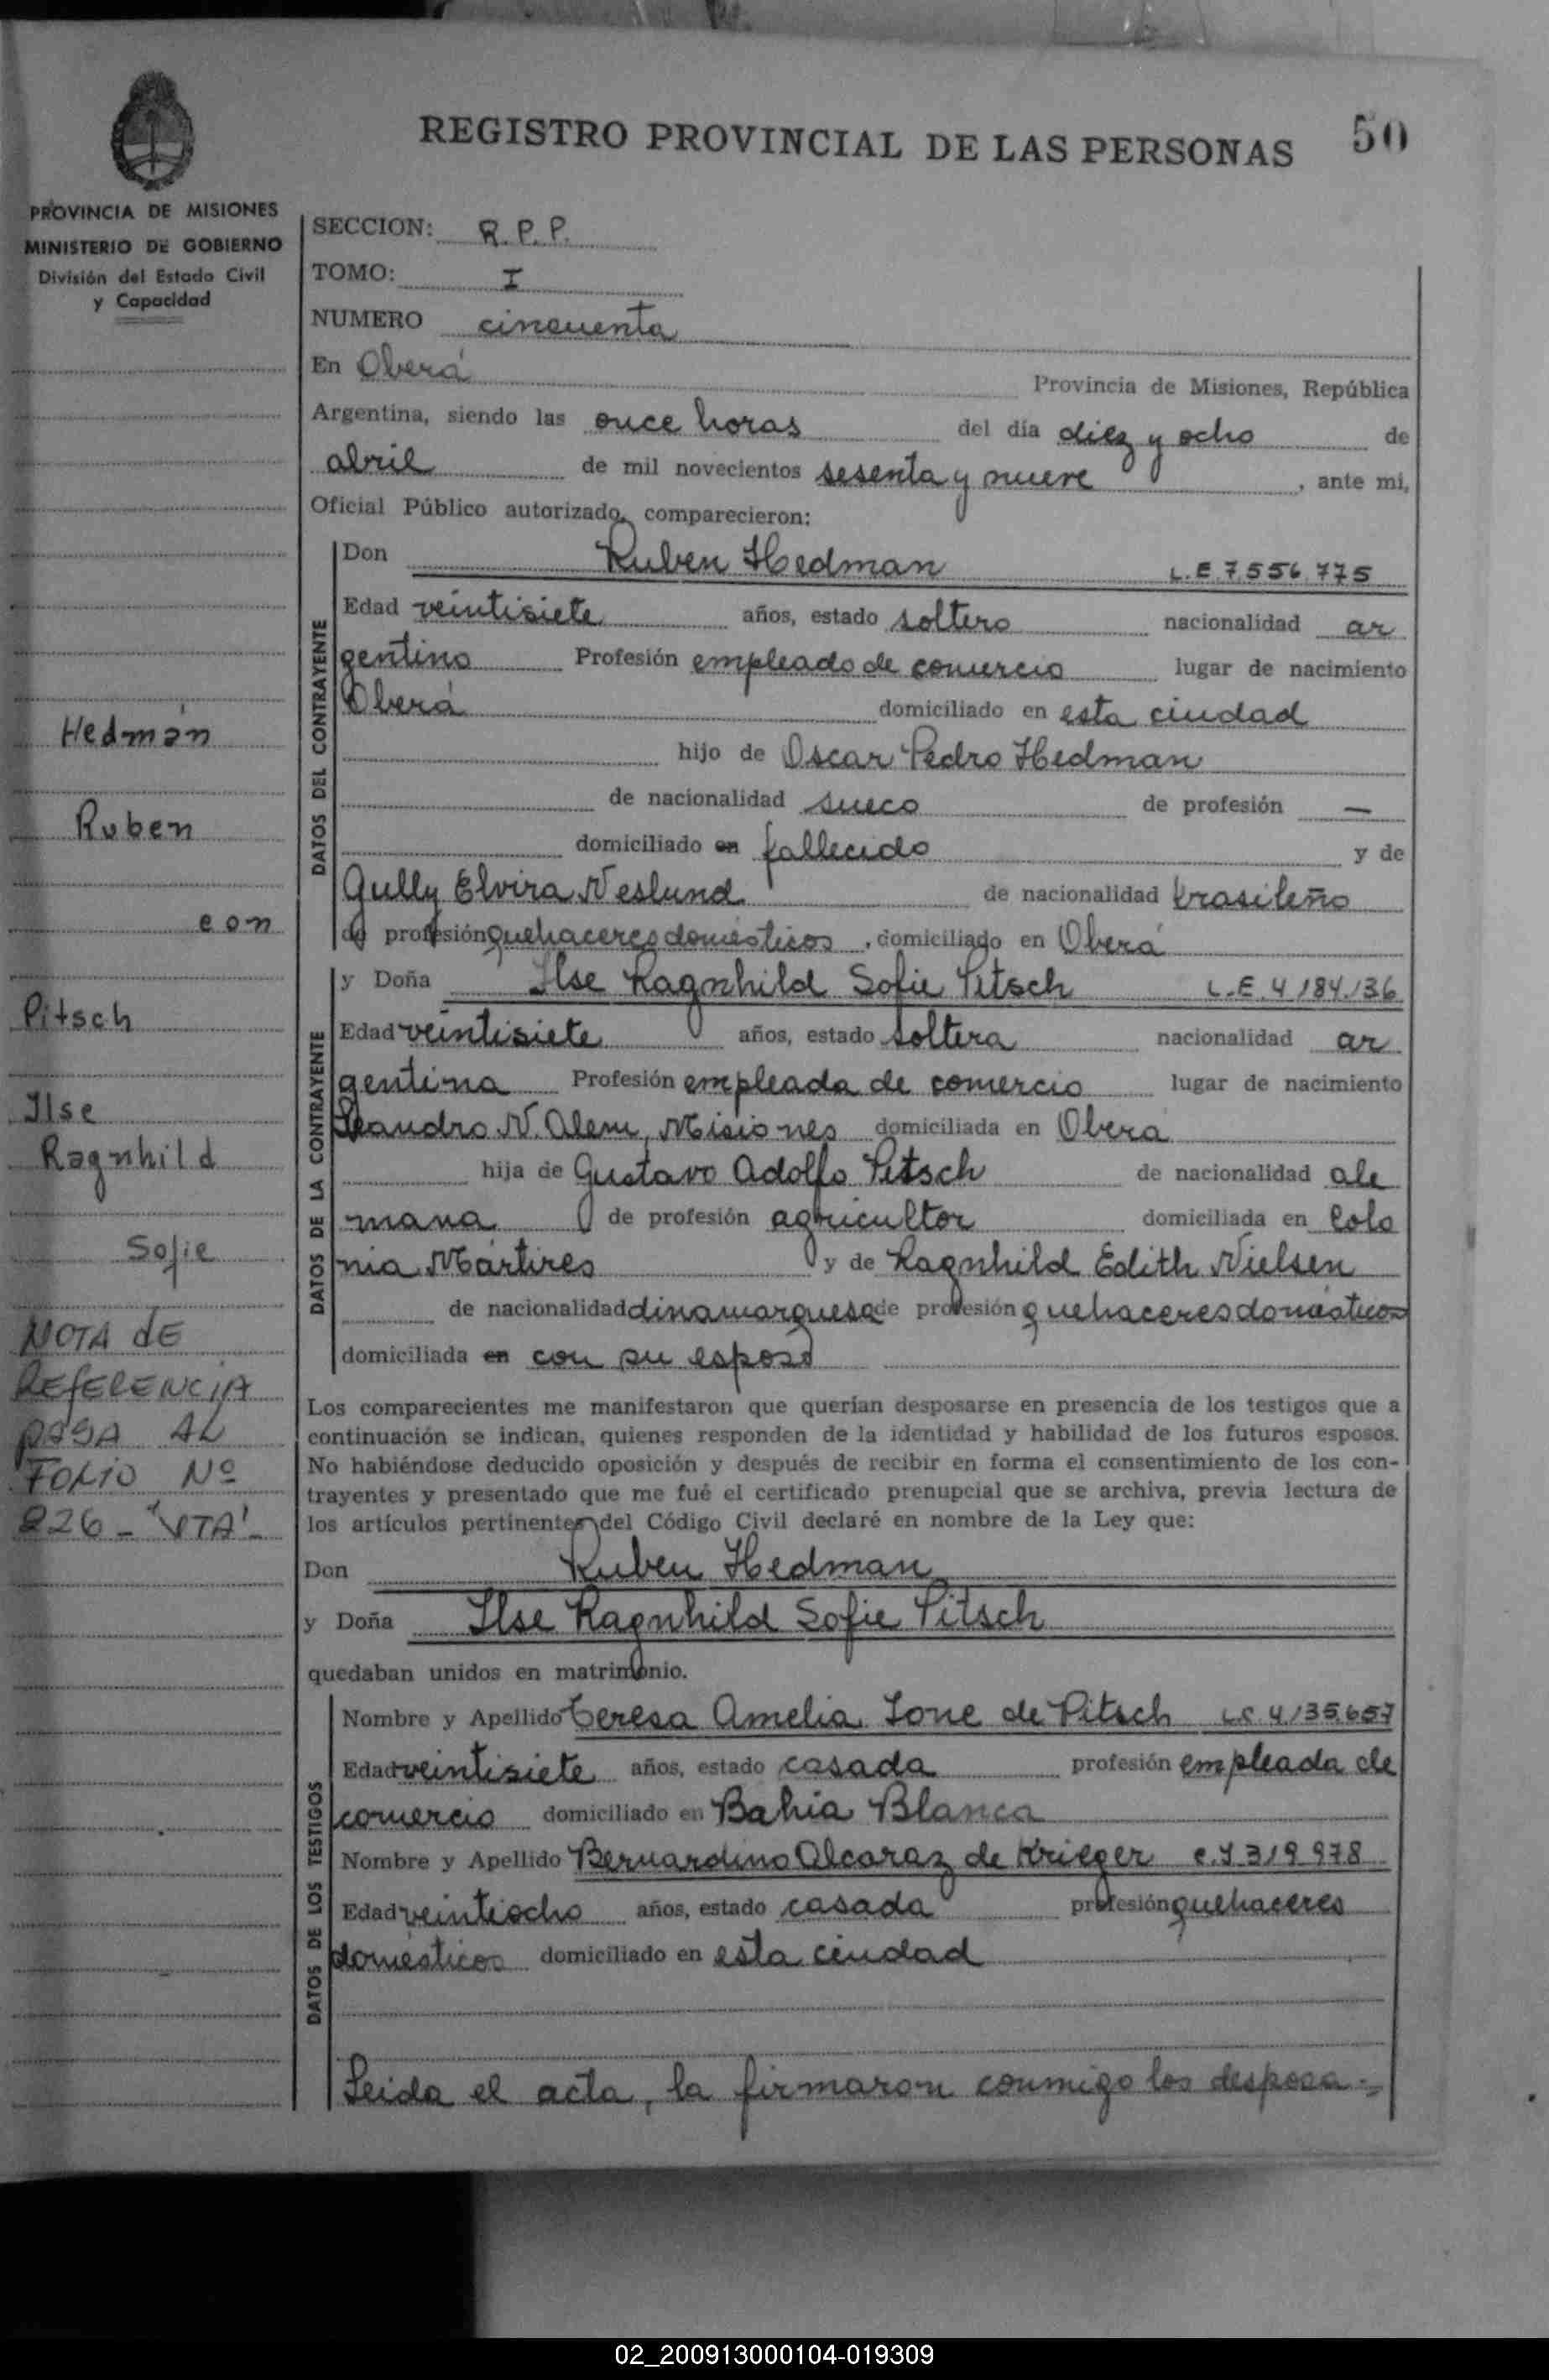 REGISTRO PROVINCIAL DE LAS PERSONAS 50
PROVINCIA DE MISIONES
MINISTERIO DE GOBIERNO
División del Estado Civil
y Capacidad
Hedman
Ruben
con
Pitsch
Ilse
Ragnhild
Sofie
NOTA dE
REfERENCIA
PASA AL
FOLIO Nº
226 - "VTA"-
SECCION: R. P. P.
TOMO: I
NUMERO cincuenta
En Oberá Provincia de Misiones, República
Argentina, siendo las once horas del día diez y ocho de
abril de mil novecientos sesenta y nueve, ante mi,
Oficial Público autorizado, comparecieron:
DATOS DEL CONTRAYENTE
Don Ruben Hedman L.E. 7.556.775
Edad veintisiete años, estado soltero nacionalidad ar
gentino Profesión empleado de comercio lugar de nacimiento
Oberá domiciliado en esta ciudad
hijo de Oscar Pedro Hedman
de nacionalidad sueco de profesión —
domiciliado en fallecido y de
Gully Elvira Neslund de nacionalidad brasileño
de profesión quehaceres domésticos, domiciliado en Oberá
DATOS DE LA CONTRAYENTE
y Doña Ilse Ragnhild Sofie Pitsch L.E. 4.184.136
Edad veintisiete años, estado soltera nacionalidad ar
gentina Profesión empleada de comercio lugar de nacimiento
Leandro N. Alem, Misiones domiciliada en Oberá
hija de Gustavo Adolfo Pitsch de nacionalidad ale
mana de profesión agricultor domiciliada en Colo
nia Mártires y de Ragnhild Edith Nielsen
de nacionalidad dinamarquesa de profesión quehaceres domésticos
domiciliada en con su esposo
Los comparecientes me manifestaron que querían desposarse en presencia de los testigos que a
continuación se indican, quienes responden de la identidad y habilidad de los futuros esposos.
No habiéndose deducido oposición y después de recibir en forma el consentimiento de los con-
trayentes y presentado que me fué el certificado prenupcial que se archiva, previa lectura de
los artículos pertinentes del Código Civil declaré en nombre de la Ley que:
Don Ruben Hedman
y Doña Ilse Ragnhild Sofie Pitsch
quedaban unidos en matrimonio.
DATOS DE LOS TESTIGOS
Nombre y Apellido Teresa Amelia de Pitsch 4.135.657
Edad veintisiete años, estado casada profesión empleada de
comercio domiciliado en Bahia Blanca
Nombre y Apellido Bernardino Alcaraz de Krieger C.I 319.978
Edad veintiocho años, estado casada profesión quehaceres
domésticos domiciliado en esta ciudad
Leida el acta, la firmaron conmigo los desposa-
02_200913000104-019309